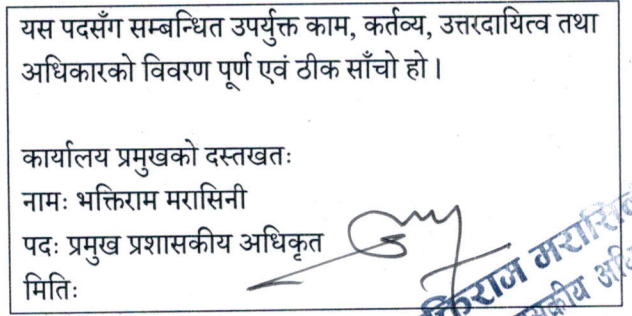 यस पदसँग सम्बन्धित उपर्युक्त काम, कर्तव्य, उत्तरदायित्व तथा
अधिकारको विवरण पूर्ण एवं ठीक साँचो हो ।
कार्यालय प्रमुखको दस्तखतः
नामः भक्तिराम मरासिनी
पदः प्रमुख प्रशासकीय अधिकृत
मितिः